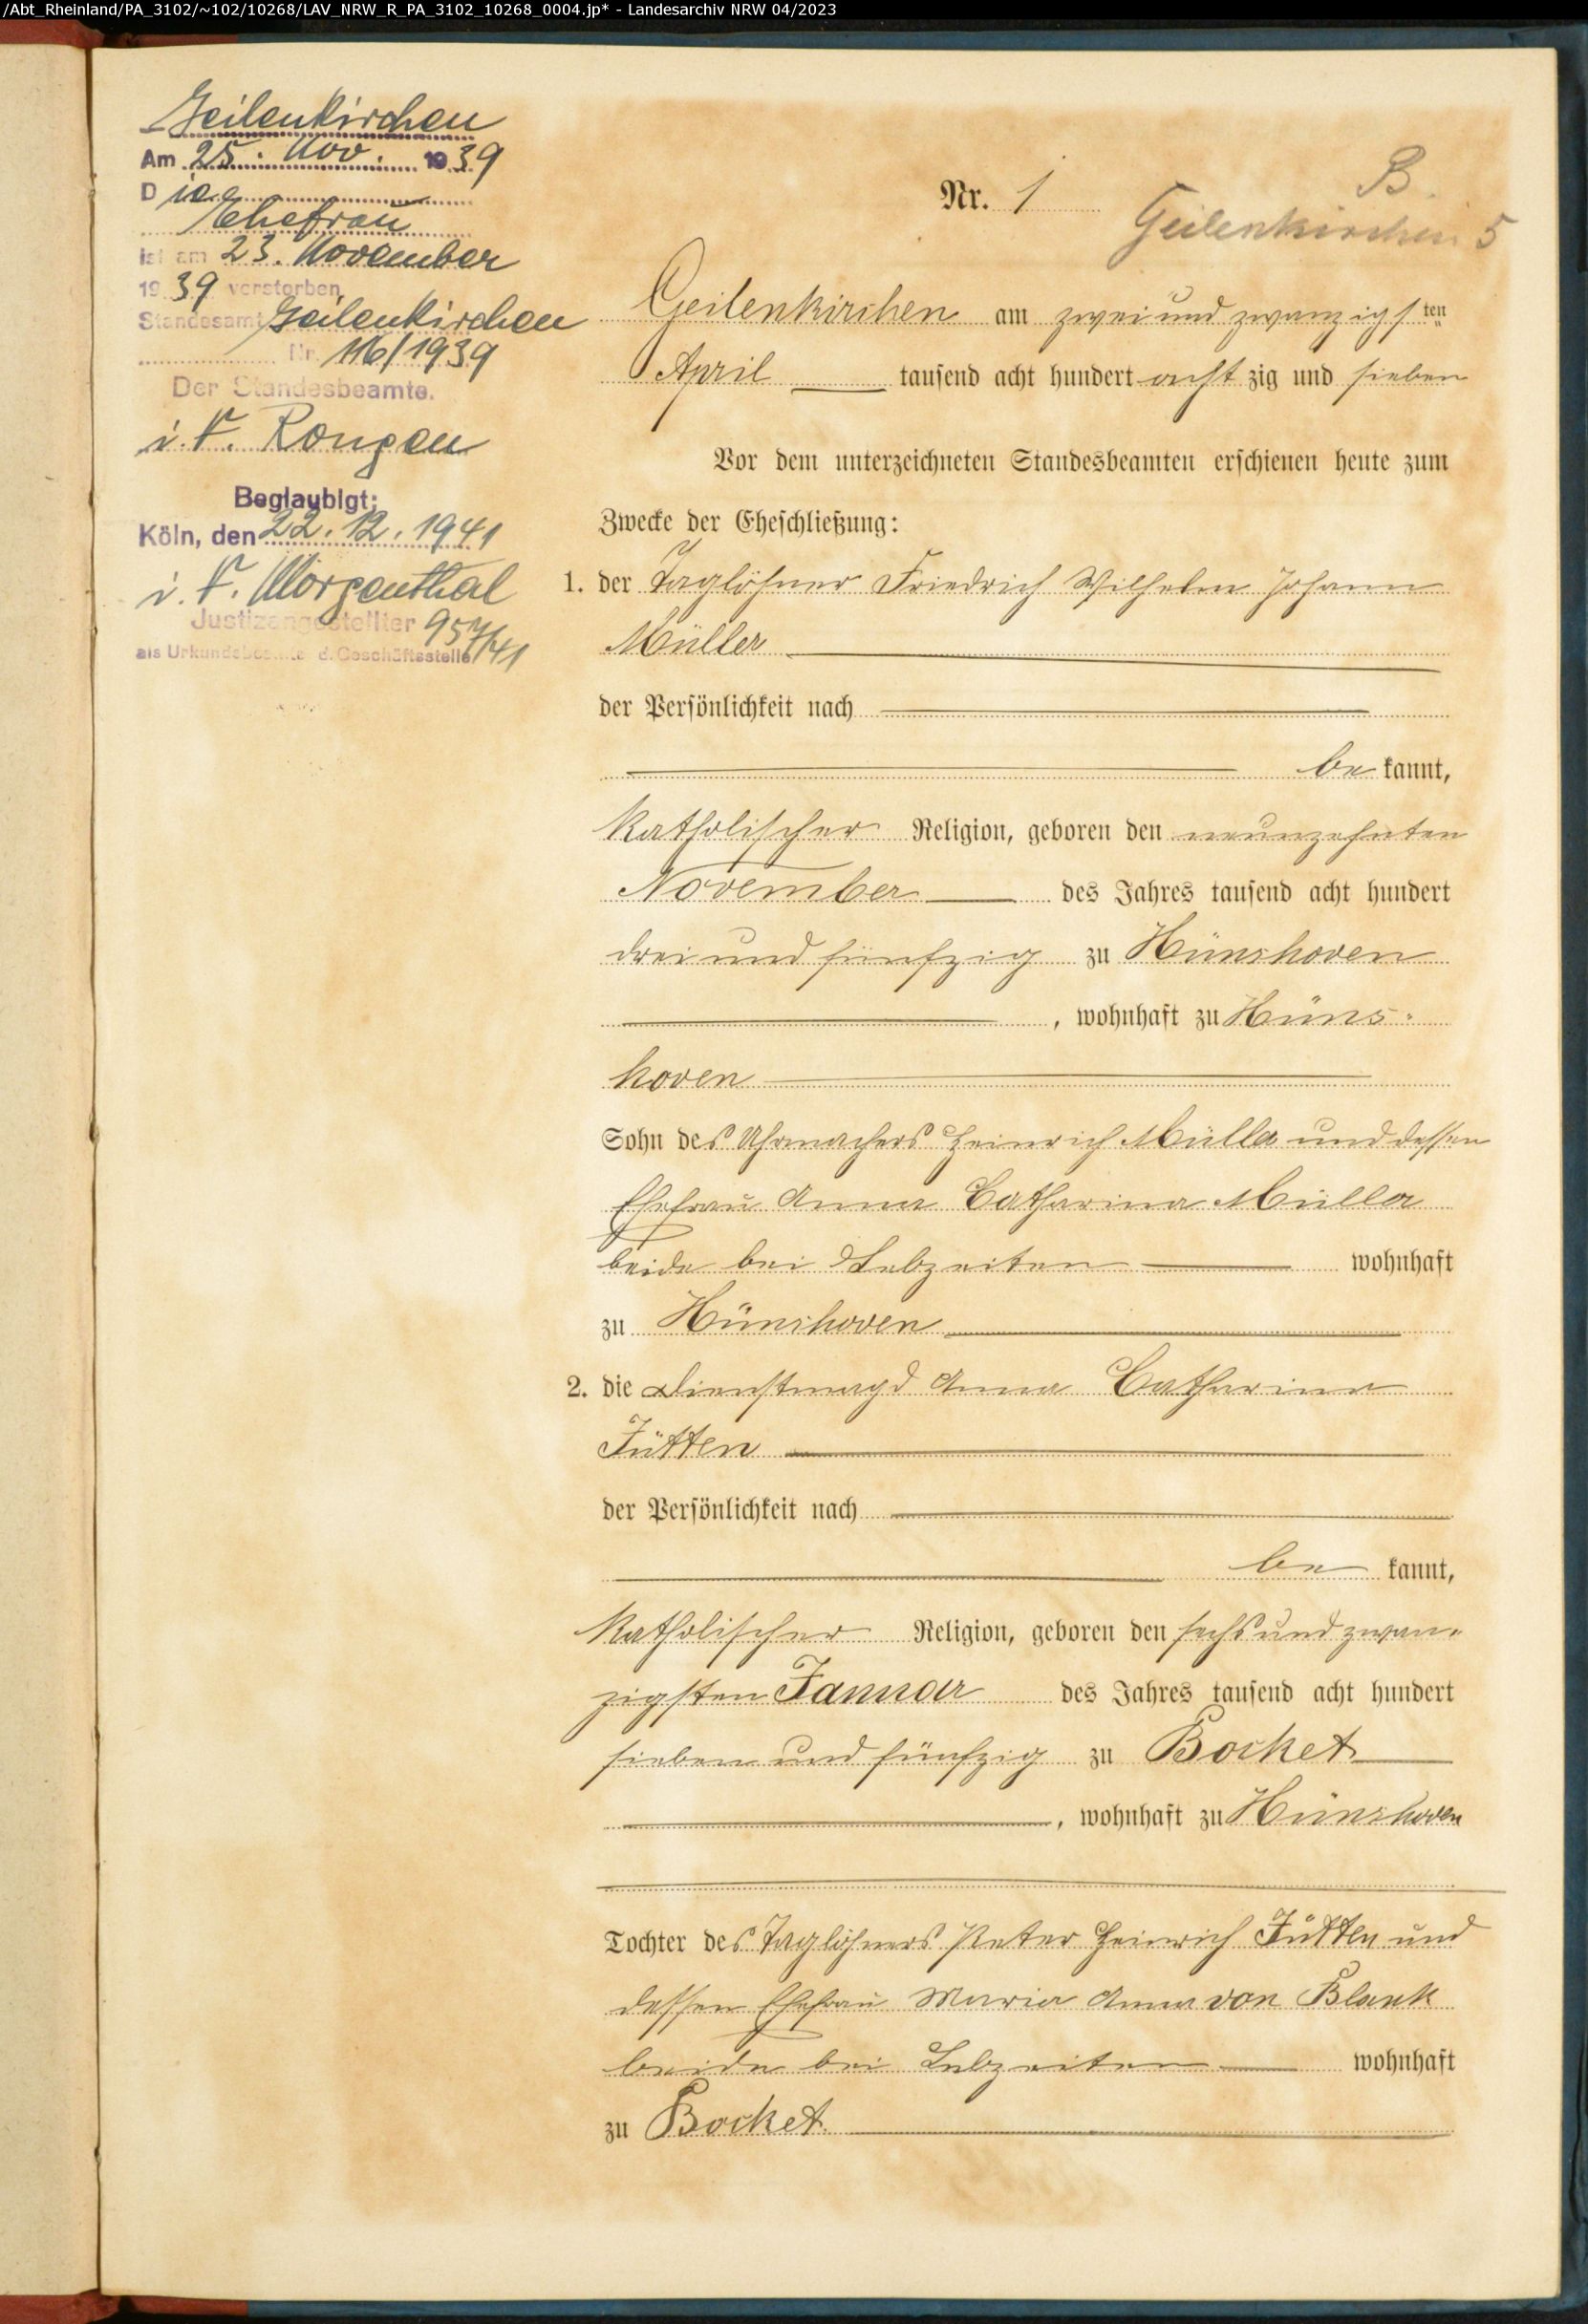 /Abt_Rheinland/PA_3102/~102/10268/LAV_NRW_R_PA_3102_10268_0004.jp* - Landesarchiv NRW 04/2023
Geilenkirchen
Am 25. Nov. 1939
Die
Ehefrau
ist am 23. November
1939 verstorben
Standesamt Geilenkirchen
Nr. 116/1939
Der Standesbeamte.
i. V. Rongen
Beglaubigt:
Köln, den 22. 12. 1941
i. V. Morgenthal
Justizangestellter 957/41
als Urkundsbeamte d. Geschäftsstelle
B
Nr. 1
Geilenkirchen 5
Geilenkirchen am zwei und zwanzigsten
April tausend acht hundert achtzig und sieben
Vor dem unterzeichneten Standesbeamten erschienen heute zum
Zwecke der Eheschließung:
1. der Taglöhner Friedrich Wilhelm Johann
Müller
der Persönlichkeit nach
bekannt,
katholischer Religion, geboren den neunzehnten
November des Jahres tausend acht hundert
drei und fünfzig zu Hünshoven
, wohnhaft zu Hüns-
hoven
Sohn des Uhrmachers Heinrich Müller und dessen
Ehefrau Anna Catharina Müller
beide bei Lebzeiten wohnhaft
zu Hünshoven
2. die Dienstmagd Anna Catharina
Jütten
der Persönlichkeit nach
bekannt,
katholischer Religion, geboren den sechs und zwan-
zigsten Januar des Jahres tausend acht hundert
sieben und fünfzig zu Bocket
, wohnhaft zu Hünshoven
Tochter des Taglöhners Peter Heinrich Jütten und
dessen Ehefrau Maria Anna von Blank
beide bei Lebzeiten wohnhaft
zu Bocket